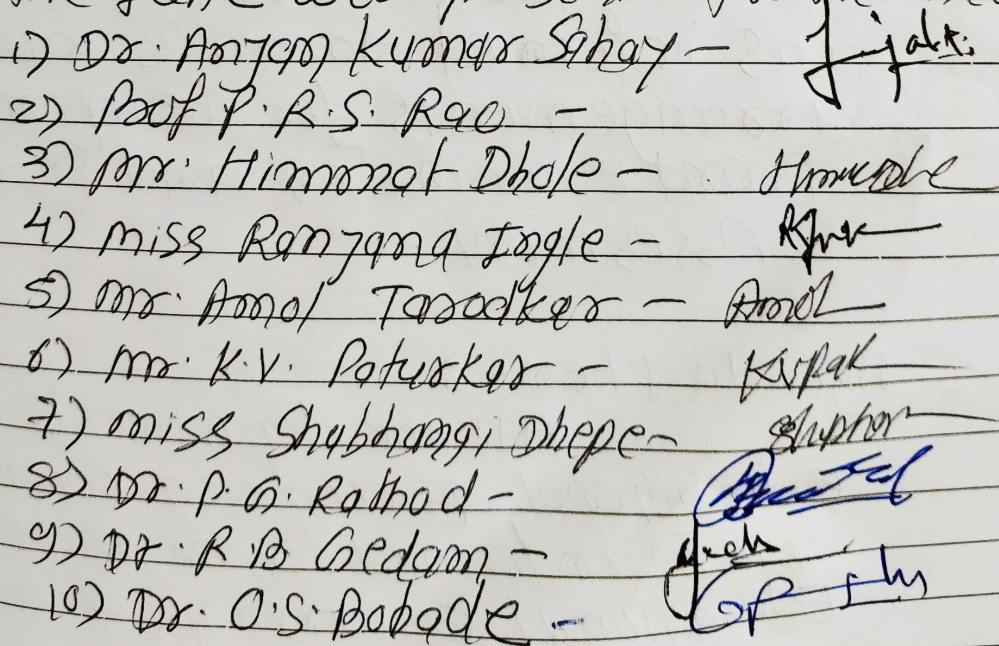 1) Dr. Anjan Kumar Sahay -
2) Prof P. R. S. Rao -
3) Mr. Himmat Dhole -
4) Miss Ranjana Ingle -
5) Mr. Amol Tarodkar - Amol
6) Mr. K.V. Paturkar -
7) Miss Shubhangi Dhepe -
8) Dr. P. G. Rathod -
9) Dr. R B Gedam -
10) Dr. O.S. Bobade -